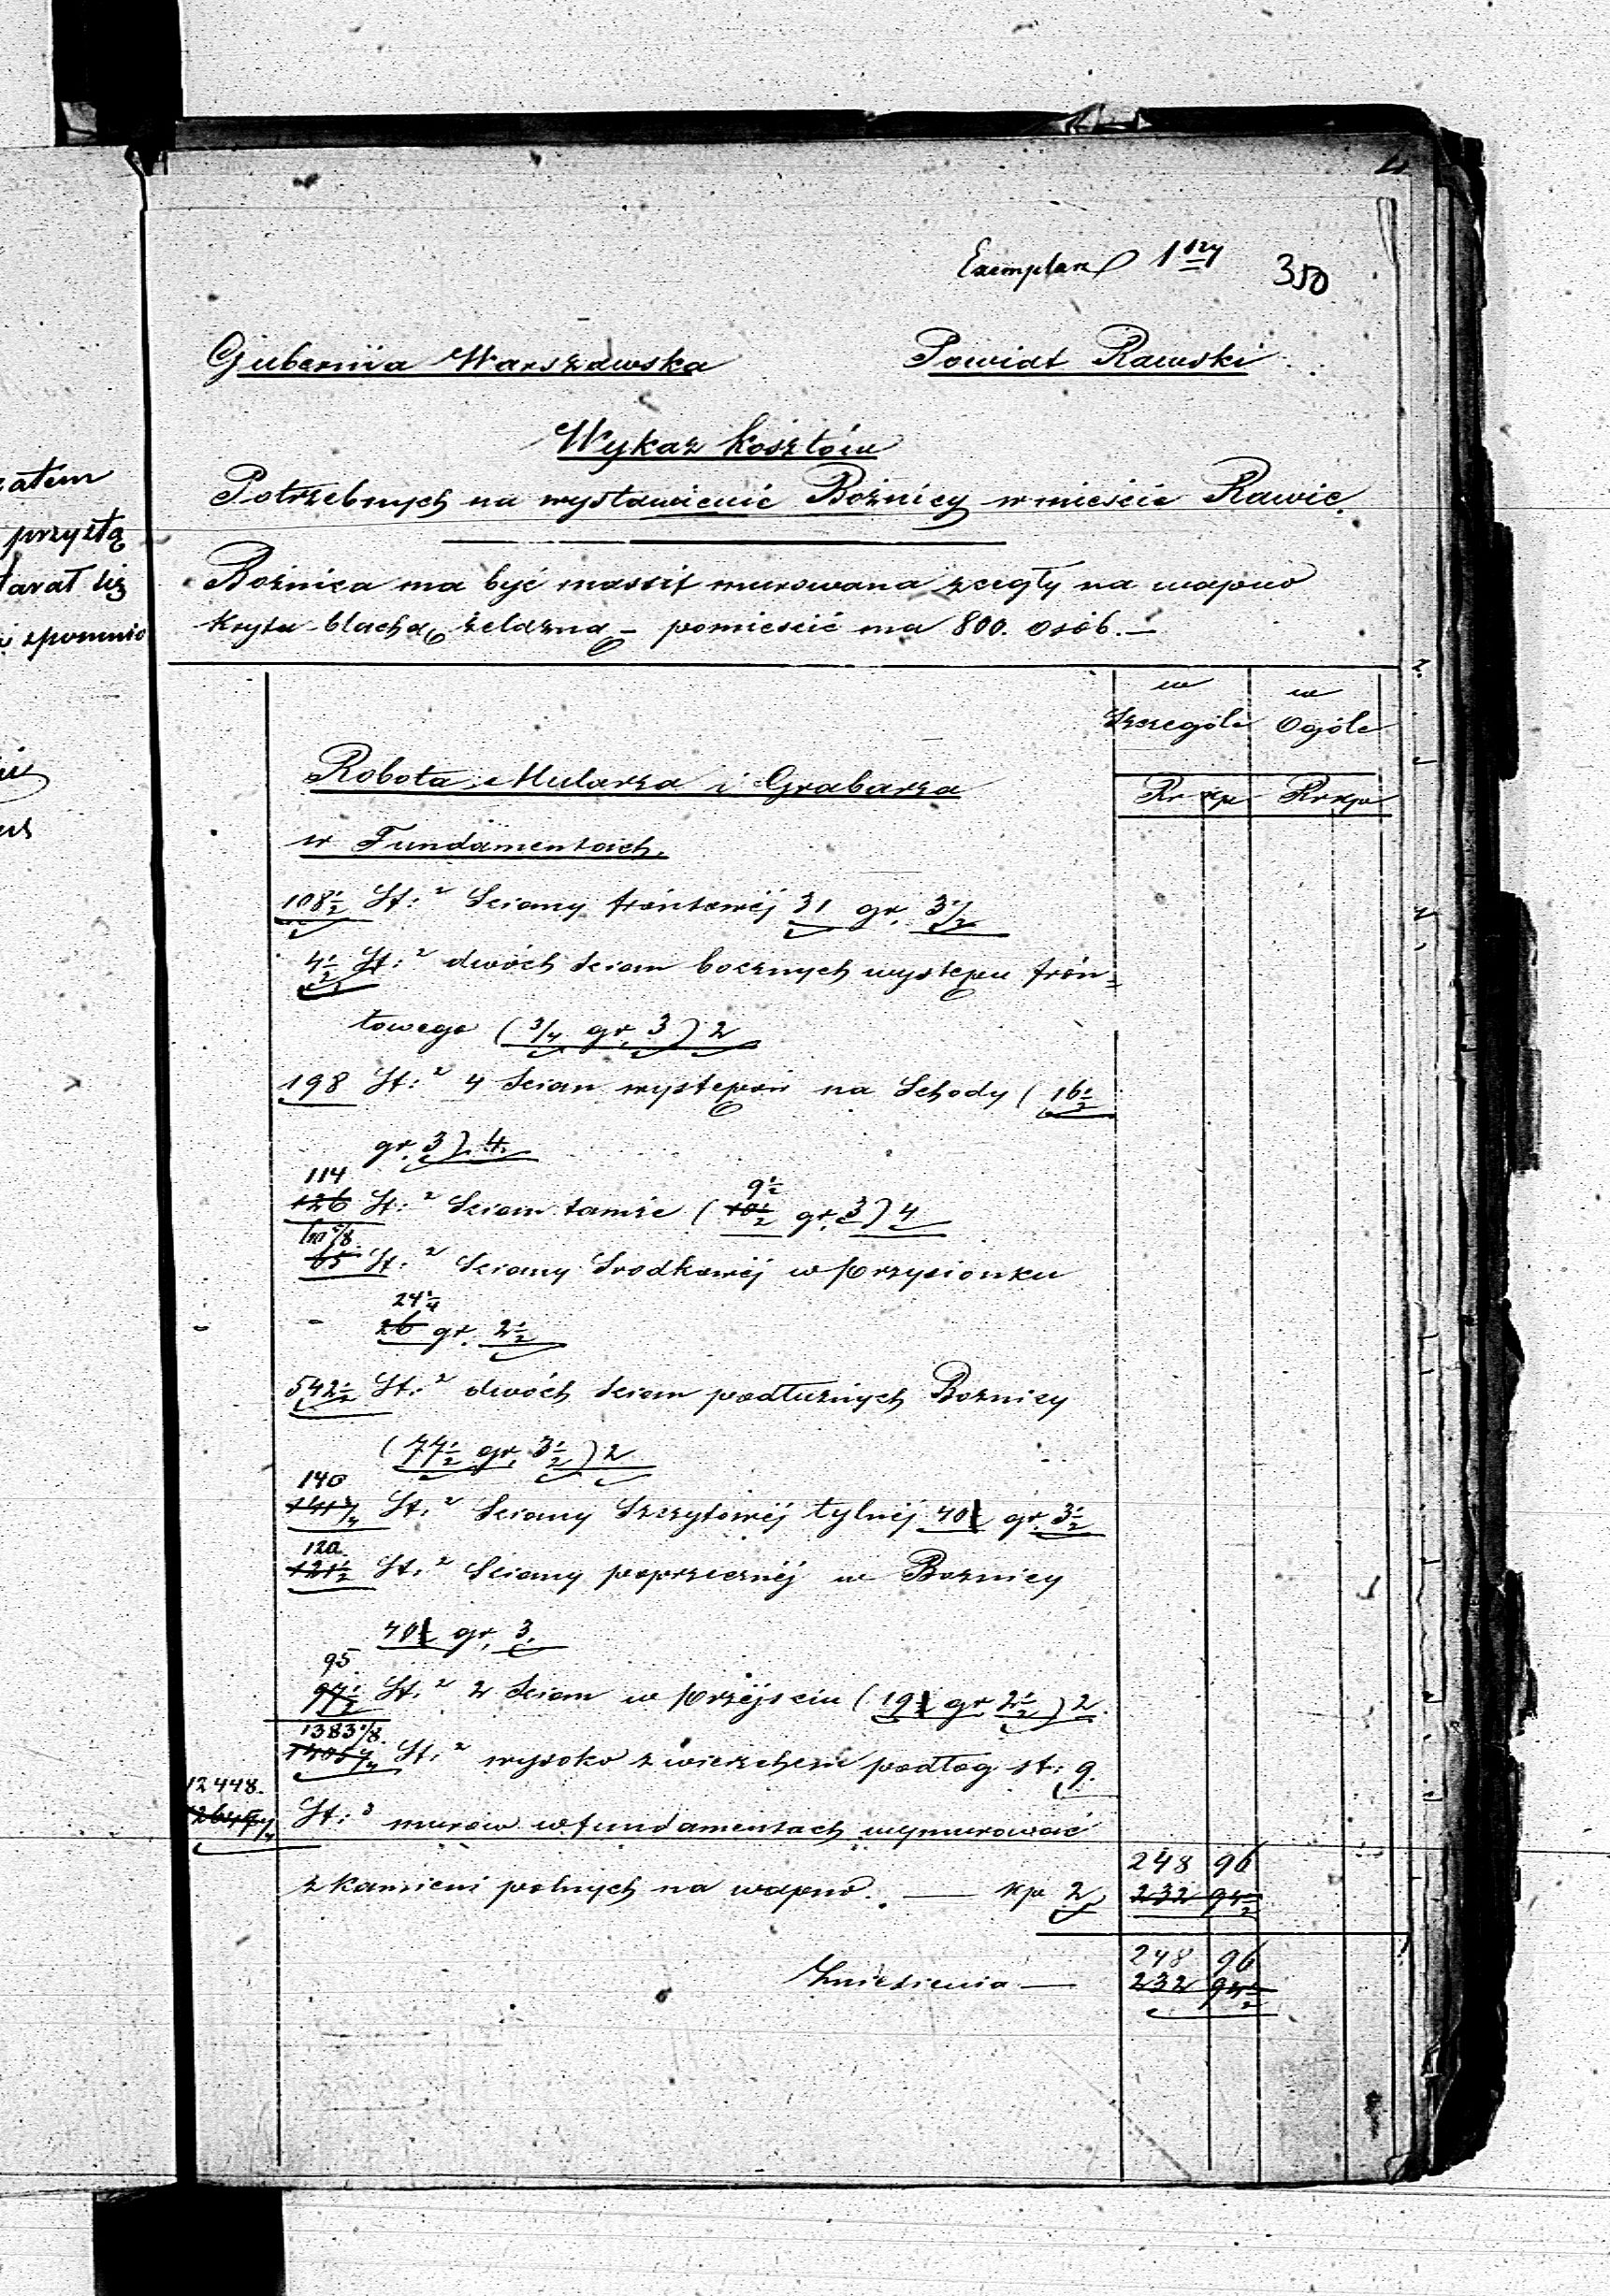 Exemplarz 1szy 350
Gubernia Warszawska Powiat Rawski
Wykaz Kosztów
Potrzebnych na wystawienie Bożnicy w mieście Rawie.
Bożnica ma być massif murowana z cegły na wapno
kryta blachą żelazną – pomieścić ma 800. osób. –
w Szczególe w Ogóle
Robota Mularza i Grabarza
Rr kp Rr kp
w Fundamentach.
108½ St:² Sciany frontowéj 31 gr. 3½
4½ St:² dwóch scian bocznych występu fron=
towego (¾ gr. 3) 2
198 St:² 4 Scian występów na Schody (16½
gr. 3). 4.
114
126 St:² Scian tamże (10½ gr. 3) 4
9½
60 5/8
65 St:² Sciany Srodkowéj w przysionku
24¼
26 gr. 2½
542½ St:² dwóch scian podłużnych Boznicy
(77½ gr. 3½) 2
140
141¾ St:² Sciany Szczytowéj tylnéj 40 gr. 3½
120
121½ St:² Sciany poprzecznéj w Boznicy
40 gr. 3.
95
97½ St:² 2 Scian w przejsciu (19 gr. 2½) 2.
1383 5/8
St:² wysoko z wierzchem podłog st: 9.
12448.
St:³ murów w fundamentach wymurować
248 96
z kamieni polnych na wapno. — kp 2 232 94½
248 96
Zniesienia — 232 94½
zatem
przyszłą